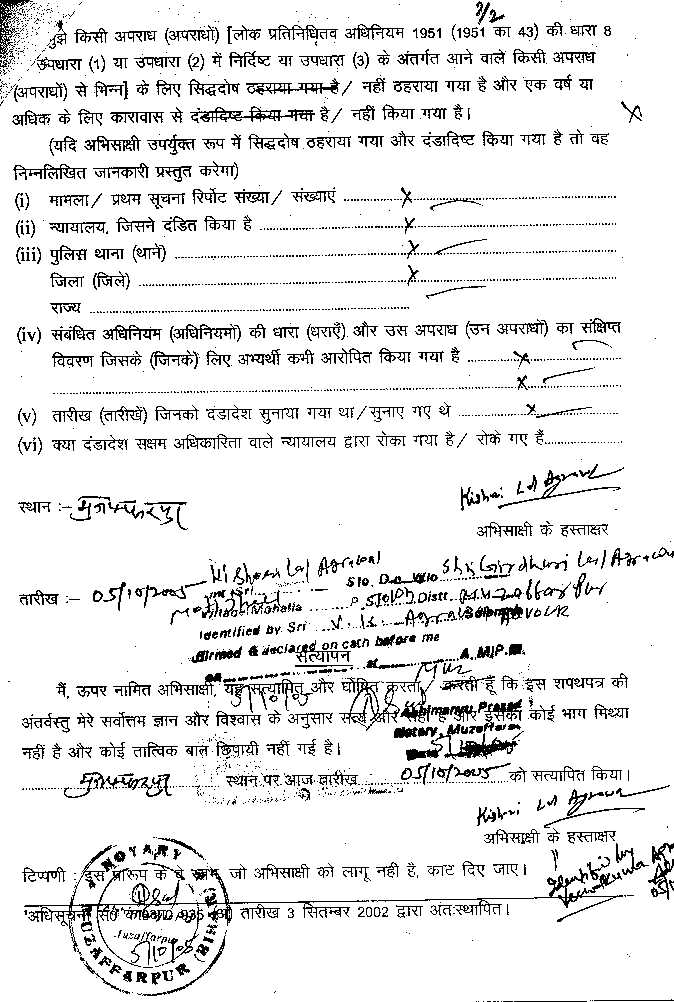 7/2
मुझे किसी अपराध (अपराधों) [लोक प्रतिनिधित्व अधिनियम 1951 (1951 का 43) की धारा 8
उपधारा (1) या उपधारा (2) में निर्दिष्ट या उपधारा (3) के अंतर्गत आने वाले किसी अपराध
(अपराधों) से भिन्न] के लिए सिद्धदोष ठहराया गया है / नहीं ठहराया गया है और एक वर्ष या
अधिक के लिए कारावास से दंडादिष्ट किया गया है / नहीं किया गया है।
(यदि अभिसाक्षी उपर्युक्त रूप में सिद्धदोष ठहराया गया और दंडादिष्ट किया गया है तो वह
निम्नलिखित जानकारी प्रस्तुत करेगा)
(i) मामला / प्रथम सूचना रिर्पोट संख्या / संख्याएं ........ x
(ii) न्यायालय, जिसने दंडित किया है ........ x
(iii) पुलिस थाना (थाने) ........ x
जिला (जिले) ........ x
राज्य ........
(iv) संबंधित अधिनियम (अधिनियमों) की धारा (धराएँ) और उस अपराध (उन अपराधों) का संक्षिप्त
विवरण जिसके (जिनके) लिए अभ्यर्थी कभी आरोपित किया गया है ........ x
........ x
(v) तारीख (तारीखें) जिनको दंडादेश सुनाया गया था / सुनाए गए थे ........ x
(vi) क्या दंडादेश सक्षम अधिकारिता वाले न्यायालय द्वारा रोका गया है / रोके गए हैं........
Kishori Lal Agrawal
स्थान :- मुजफ्फरपुर
अभिसाक्षी के हस्ताक्षर
तारीख :- 05/10/2005
Kishori Lal Agrawal
S/o. D.o. W/o Shri Girdhari Lal Agrawal
Village/Mohalla P.S. Distt. Muzaffarpur
Identified by Sri V. K. Agrawal Advocate
Affirmed & declared on oath before me
सत्यापन
on at A.M/P.M.
मैं, ऊपर नामित अभिसाक्षी, यह सत्यापित और घोषित करता / करती हूँ कि इस शपथपत्र की
5/10/05
अंतर्वस्तु मेरे सर्वोत्तम ज्ञान और विश्वास के अनुसार सत्य और सही है और इसका कोई भाग मिथ्या
Abhimanyu Prasad
Notary, Muzaffarpur
नहीं है और कोई तात्विक बात छिपायी नहीं गई है।
5/10/05
मुजफ्फरपुर स्थान पर आज तारीख 05/10/2005 को सत्यापित किया।
Kishori Lal Agrawal
अभिसाक्षी के हस्ताक्षर
Identified by
टिप्पणी : इस प्रारूप के वे स्तंभ, जो अभिसाक्षी को लागू नहीं है, काट दिए जाए।
अधिसूचना तारीख 3 सितम्बर 2002 द्वारा अंतःस्थापित।
NOTARY
Muzaffarpur
5/10/05
MUZAFFARPUR (BIHAR)